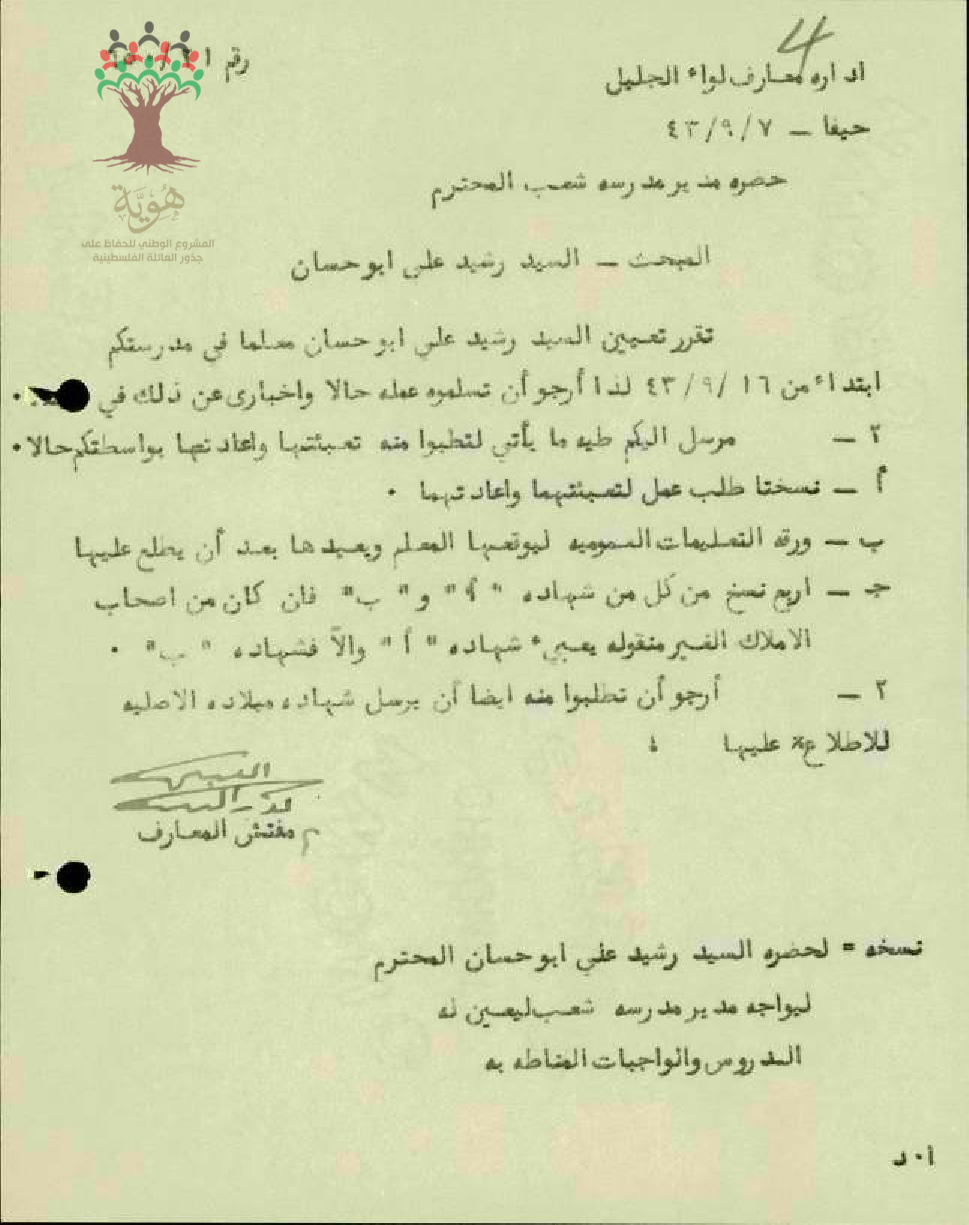 4
رقم
اداره معارف لواء الجليل
حيفا – ٤٣/٩/٧
حضره مدير مدرسه شعب المحترم
المبحث – السيد رشيد علي ابو حسان
تقرر تعيين السيد رشيد علي ابو حسان معلما في مدرستكم
ابتداء من ٤٣/٩/١٦ لذا أرجو أن تسلموه عمله حالا واخبارى عن ذلك في
٢ – مرسل اليكم طيه ما يأتي لتطبوا منه تعبئتها واعادتها بواسطتكم حالا ٠
أ – نسختا طلب عمل لتعبئتهما واعادتهما ٠
ب – ورقه التعليمات العموميه ليوقعها المعلم ويعيدها بعد أن يطلع عليها
جـ – اربع نسخ من كل من شهاده " أ " و " ب " فان كان من اصحاب
الاملاك الغير منقوله يعبيء شهاده " أ " والآ فشهاده " ب " ٠
٢ – أرجو أن تطلبوا منه ايضا أن يرسل شهاده ميلاده الاصليه
للاطلاع عليها
م مفتش المعارف
نسخه = لحضره السيد رشيد علي ابو حسان المحترم
ليواجه مدير مدرسه شعب ليعين له
الدروس والواجبات المناطه به
ا ٠ د
هُوِيَّة
المشروع الوطني للحفاظ على
جذور العائلة الفلسطينية